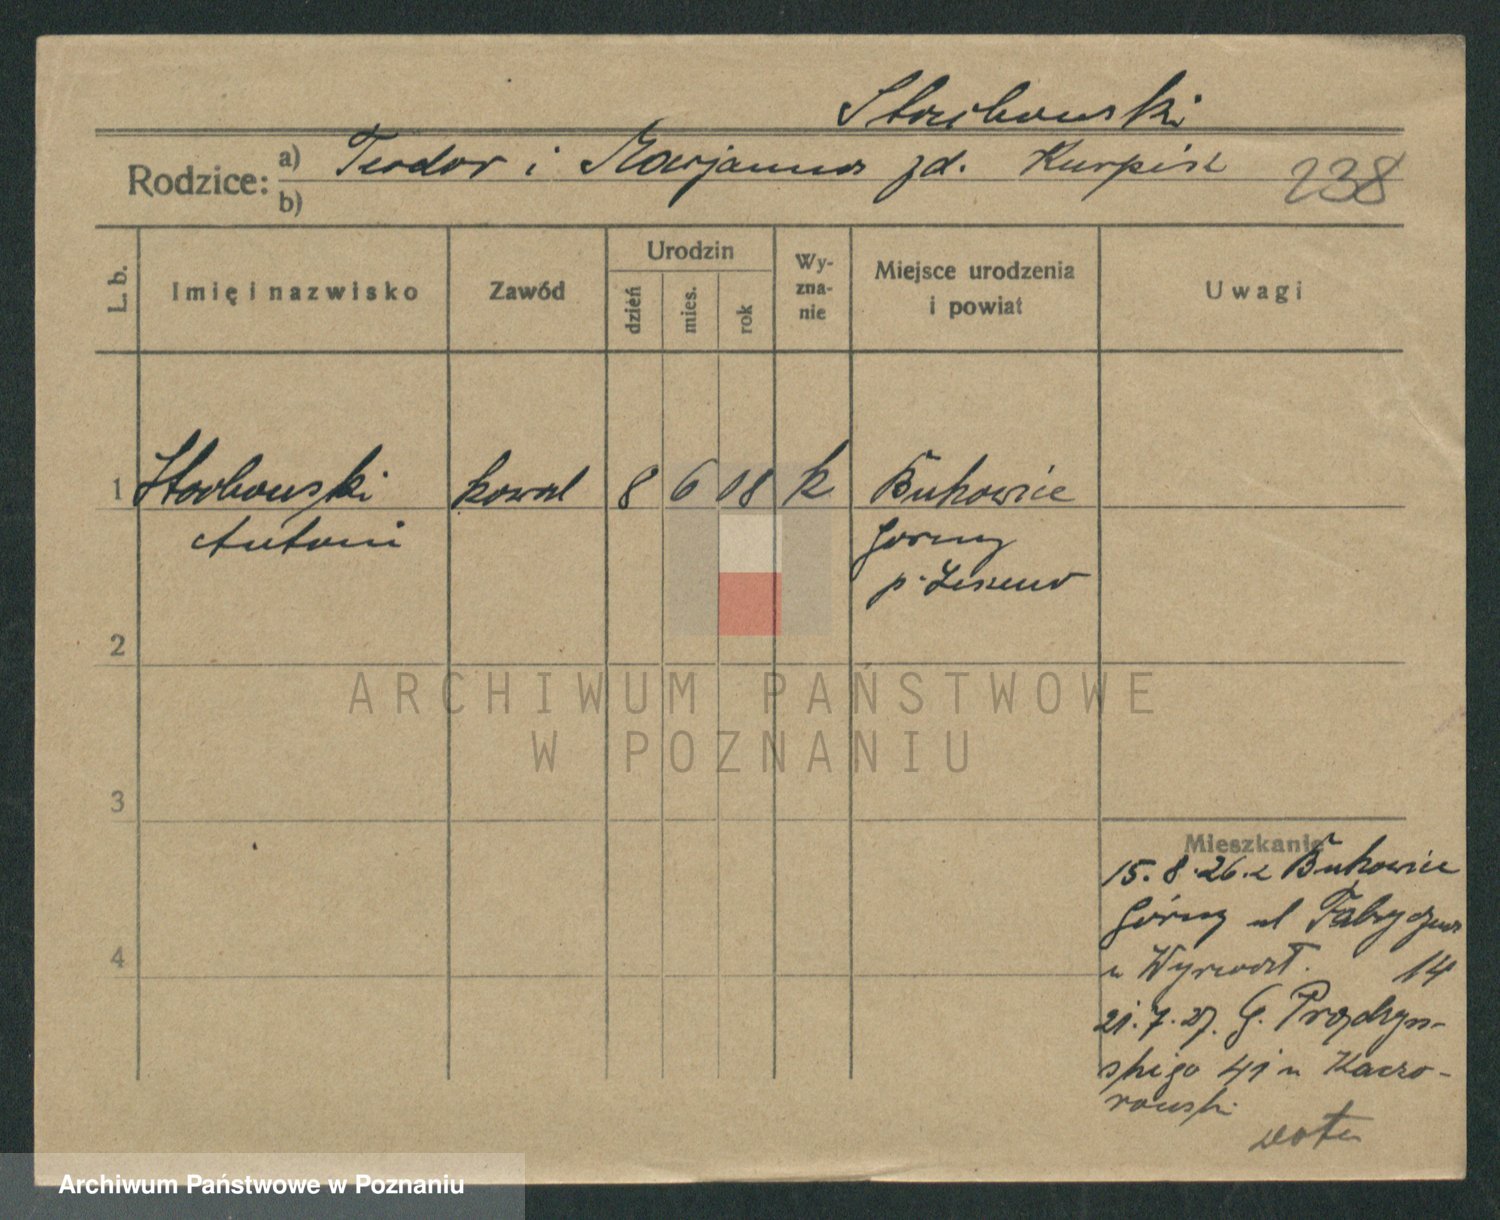 Stachowski
Rodzice: a) Teodor i Marjanna zd. Kurpisz
b)
238
L. b.
Imię i nazwisko
Zawód
Urodzin
dzień
mies.
rok
Wy-
zna-
nie
Miejsce urodzenia
i powiat
Uwagi
1 Stachowski kowal 8 6 08 k Bukowice
Antoni Górny
p. Leszno
2
ARCHIWUM PAŃSTWOWE
W POZNANIU
3
Mieszkanie
15.8.26. z Bukowice
Górny ul Fabryczna
u 14
21.7.27. G. Prądzyń-
skiego 41 u Kaczo-
rowski
4
Archiwum Państwowe w Poznaniu